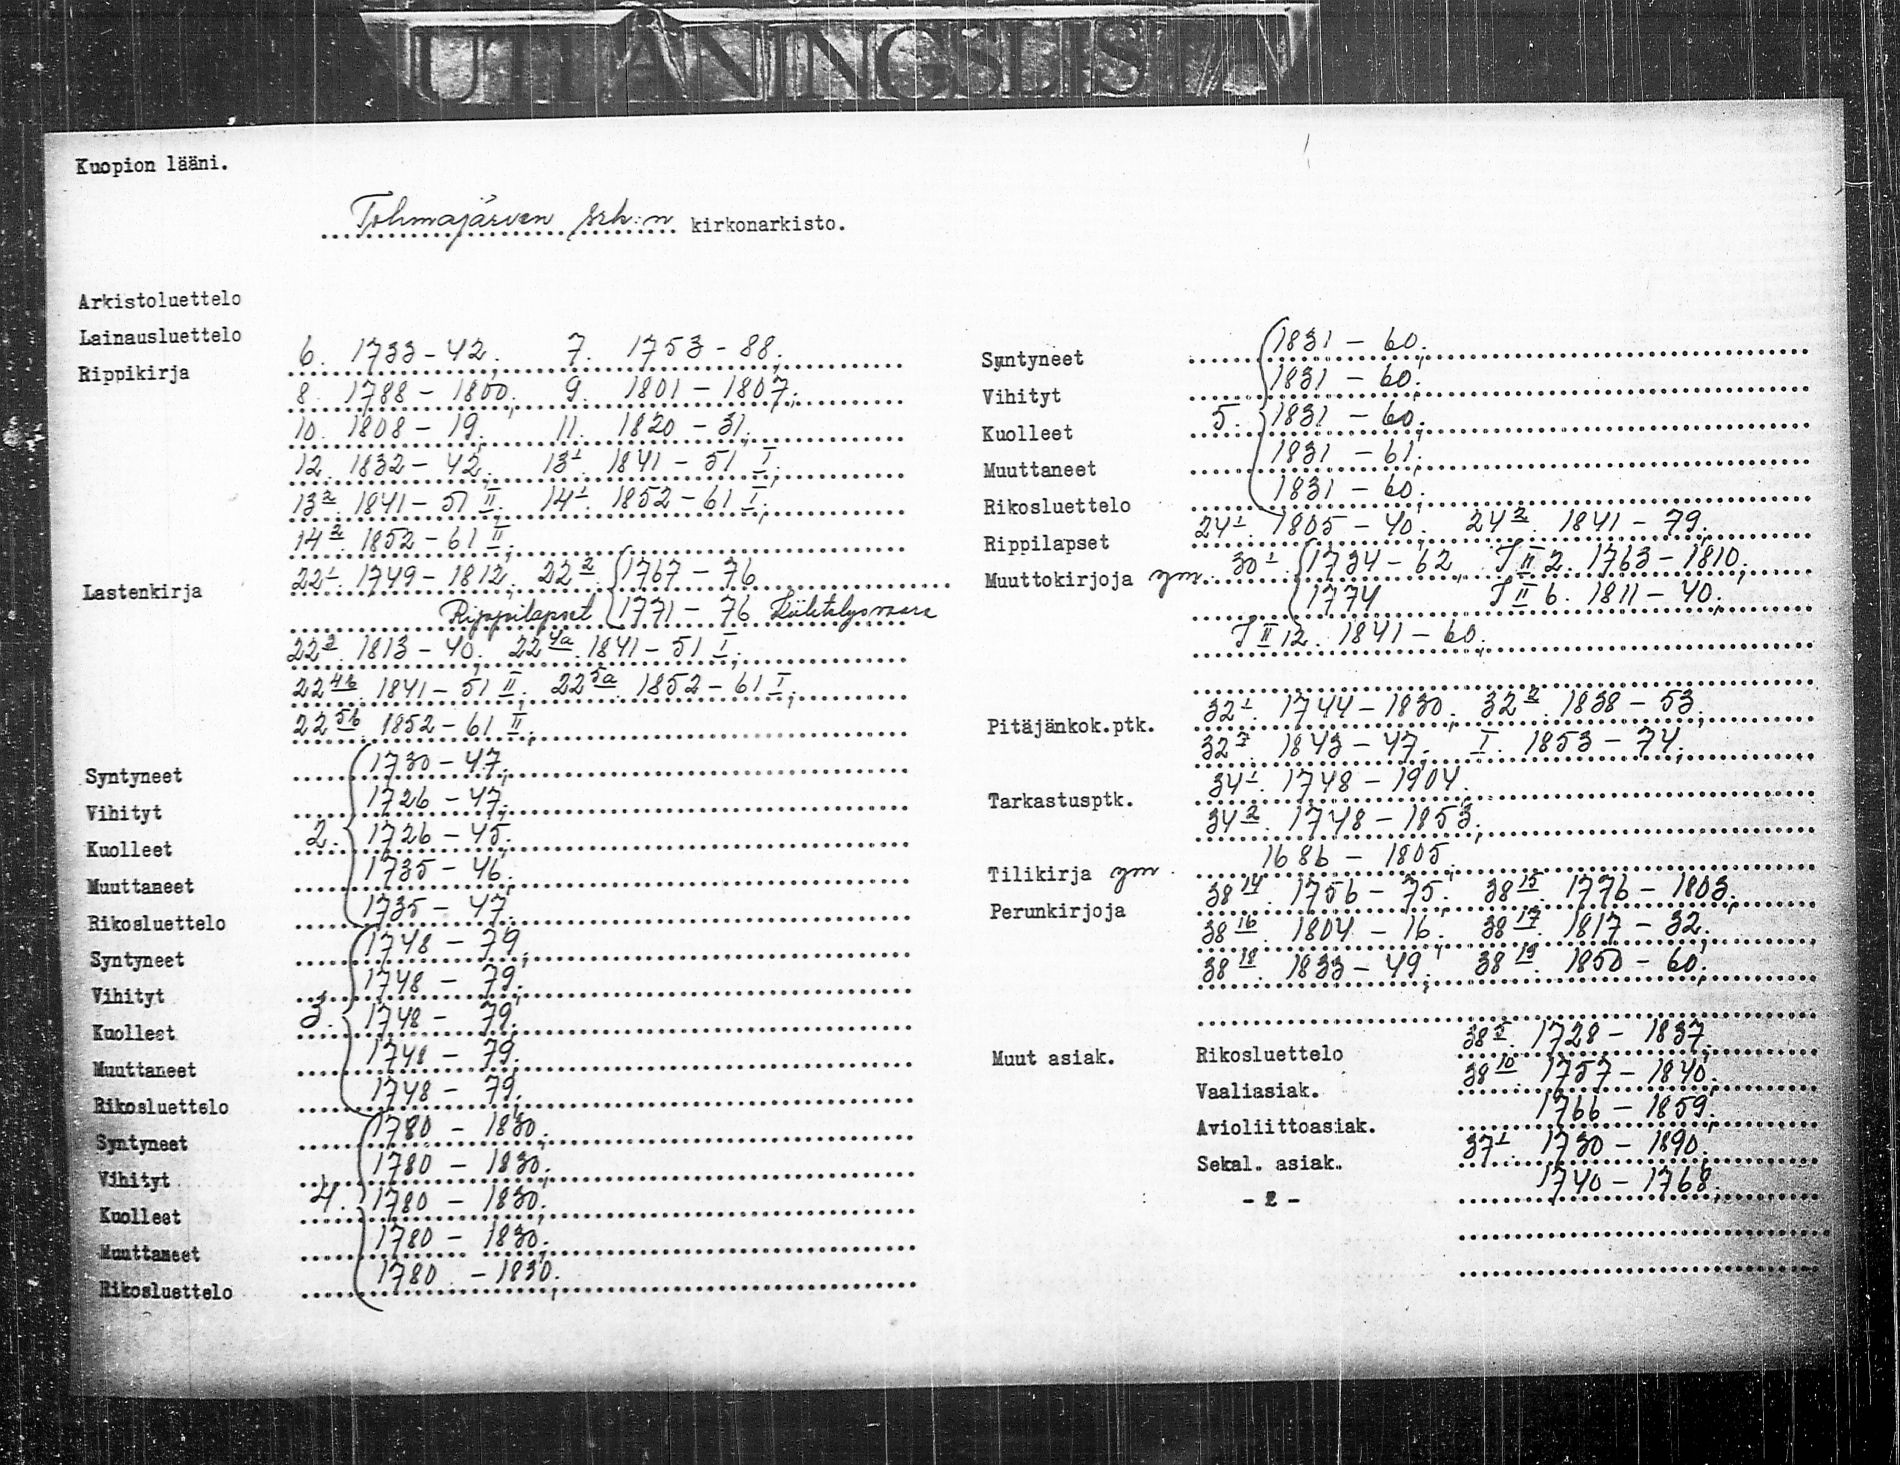 UTLÅNINGSLISTA
Kuopion lääni.
Tohmajärven srk:n kirkonarkisto.
Arkistoluettelo
Lainausluettelo
Rippikirja 6. 1733-42, 7. 1753-88,
8. 1788-1800, 9. 1801-1807,
10. 1808-19, 11. 1820-31,
12. 1832-42, 13¹. 1841-51 I,
13². 1841-51 II, 14¹. 1852-61 I,
14². 1852-61 II,
Lastenkirja 22¹. 1749-1812, 22². 1767-76
Rippilapset 1771-76 Kiihtelysvaara
22³. 1813-40. 22⁴ᵃ. 1841-51 I,
22⁴ᵇ. 1841-51 II, 22⁵ᵃ. 1852-61 I,
22⁵ᵇ. 1852-61 II,
Syntyneet 1730-47,
Vihityt 1726-47,
Kuolleet 2. 1726-45,
Muuttaneet 1735-46,
Rikosluettelo 1735-47,
Syntyneet 1748-79,
Vihityt 1748-79,
Kuolleet 3. 1748-79,
Muuttaneet 1748-79,
Rikosluettelo 1748-79,
Syntyneet 1780-1830,
Vihityt 1780-1830,
Kuolleet 4. 1780-1830,
Muuttaneet 1780-1830,
Rikosluettelo 1780-1830,
Syntyneet 1831-60,
Vihityt 1831-60,
Kuolleet 5. 1831-60,
Muuttaneet 1831-61,
Rikosluettelo 1831-60,
Rippilapset 24¹. 1805-40, 24². 1841-79,
Muuttokirjoja ym. 30¹. 1734-62, I II 2. 1763-1810,
1774 I II 6. 1811-40,
I II 12. 1841-60,
Pitäjänkok.ptk. 32¹. 1744-1830, 32². 1838-53,
32³. 1843-47, I. 1853-74,
Tarkastusptk. 34¹. 1748-1904,
34². 1748-1853,
Tilikirja ym. 1686-1805,
Perunkirjoja 38¹⁴. 1756-75, 38¹⁵. 1776-1803,
38¹⁶. 1804-16, 38¹⁷. 1817-32,
38¹⁸. 1833-49, 38¹⁹. 1850-60,
Muut asiak. Rikosluettelo 38⁵. 1728-1837,
Vaaliasiak. 38¹⁰. 1757-1840,
Avioliittoasiak. 1766-1859,
Sekal. asiak. 37¹. 1730-1890,
- " - 1740-1768,